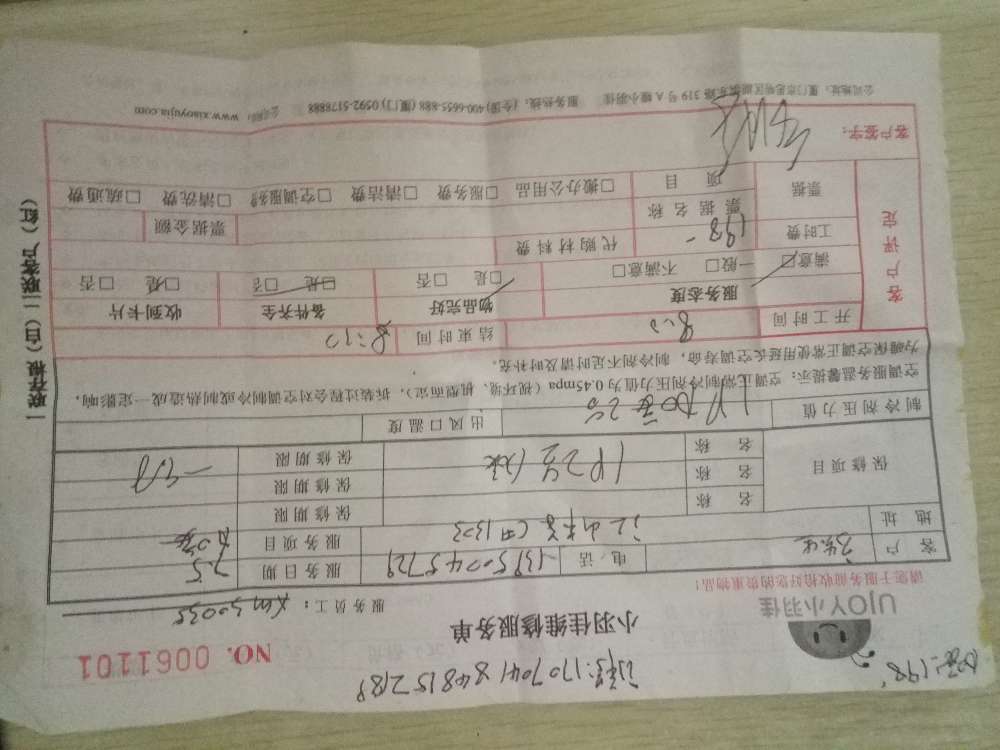 加氟:198
订单:1707041848152189
UJOY小羽佳
小羽佳维修服务单
NO. 0061101
请您于服务前收拾好您的贵重物品!
服务员工:
客户 电话 服务日期 7.5
地址 服务项目 加氟
保修项目 名称 保修期限
名称 保修期限
名称 保修期限
制冷剂压力值 出风口温度
空调服务温馨提示:空调正常制冷剂压力值为0.45mpa(视环境、机型而定),拆装过程会对空调制冷或制热造成一定影响,
为确保空调正常使用延长空调寿命,制冷剂不足时请及时补充。
开工时间 结束时间
客户评定 服务态度 物品完好 备件齐全 收到卡片
满意□ 一般□ 不满意□ □是 □否 □是 □否 □是 □否
工时费 198 代购材料费
票据 票据名称 票据金额
项目 □搬办公用品 □服务费 □清洁费 □空调服务 □清洗费 □疏通费
客户签字:
公司地址:厦门市思明区湖滨东路319号A幢小羽佳 服务热线:(全国)400-6655-888(厦门)0592-5178888 公司网站:www.xiaoyujia.com
一联存根(白)二联客户(红)